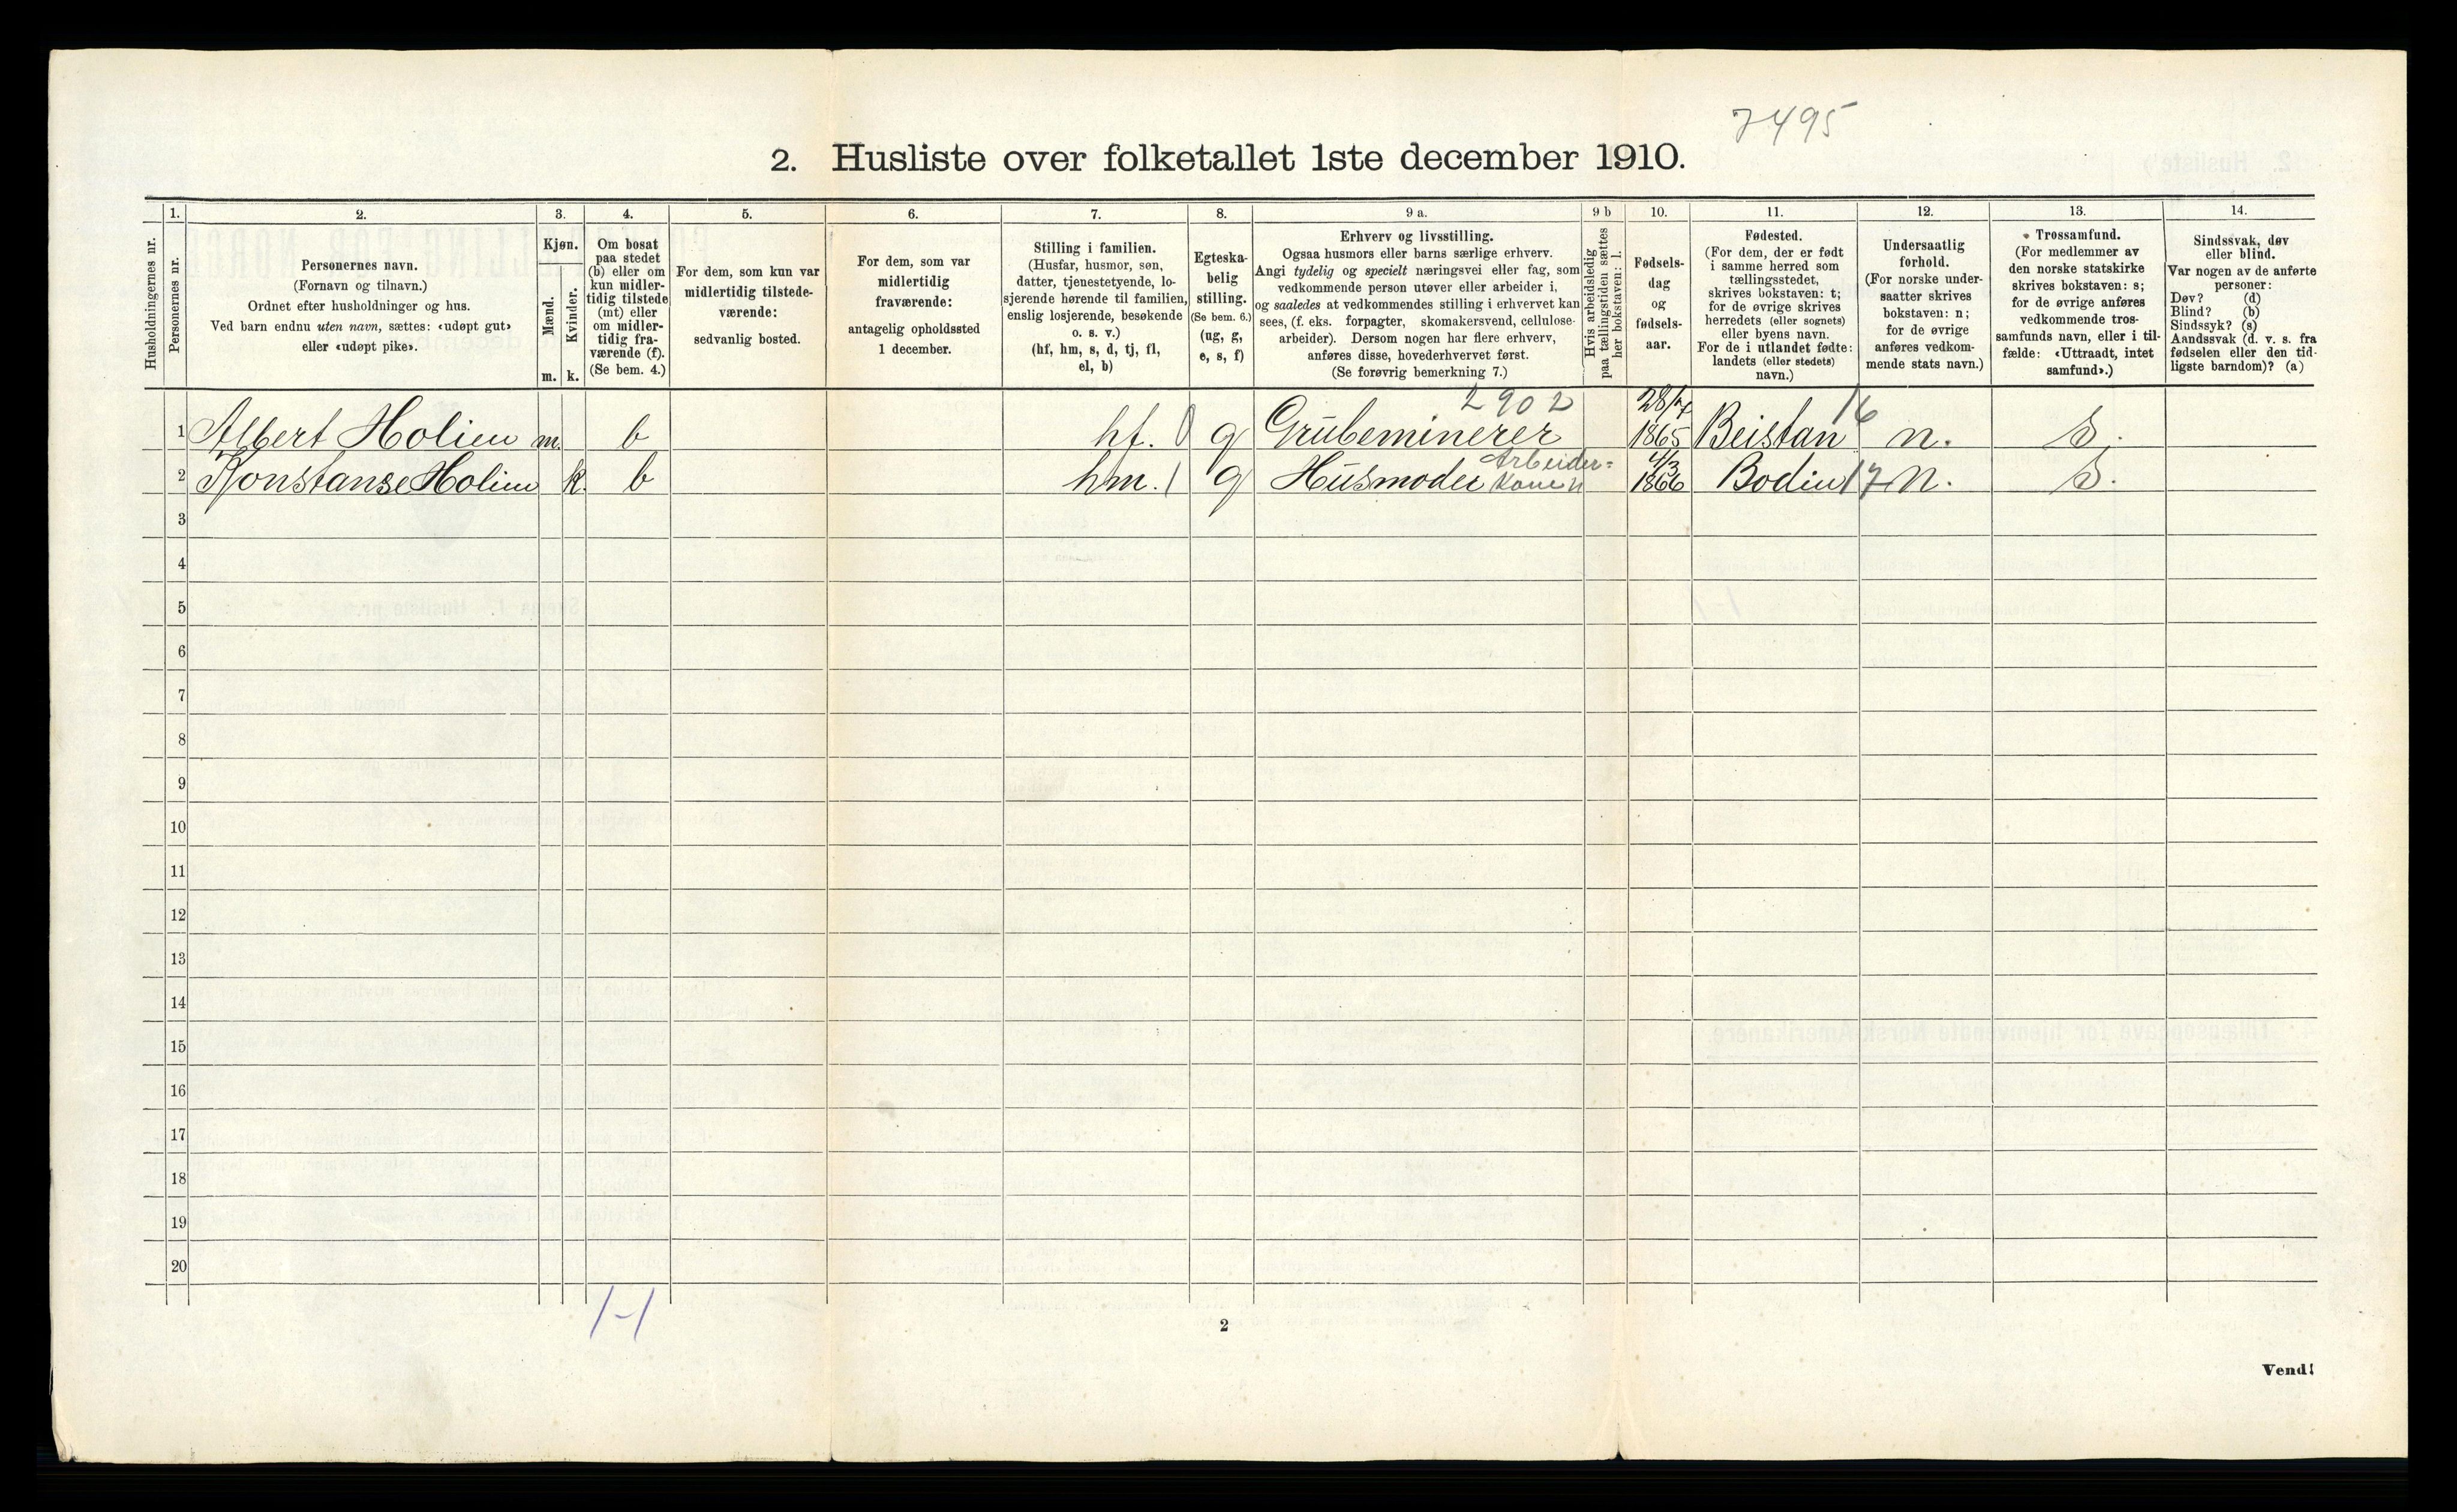 7495
2. Husliste over folketallet 1ste december 1910.
Husholdningernes nr.
1.
Personernes nr.
2.
Personernes navn.
(Fornavn og tilnavn.)
Ordnet efter husholdninger og hus.
Ved barn endnu uten navn, sættes: «udøpt gut»
eller «udøpt pike».
3.
Kjøn.
Mænd.
Kvinder.
m. k.
4.
Om bosat
paa stedet
(b) eller om
kun midler-
tidig tilstede
(mt) eller
om midler-
tidig fra-
værende (f).
(Se bem. 4.)
5.
For dem, som kun var
midlertidig tilstede-
værende:
sedvanlig bosted.
6.
For dem, som var
midlertidig
fraværende:
antagelig opholdssted
1 december.
7.
Stilling i familien.
(Husfar, husmor, søn,
datter, tjenestetyende, lo-
sjerende hørende til familien,
enslig losjerende, besøkende
o. s. v.)
(hf, hm, s, d, tj, fl,
el, b)
8.
Egteska-
belig
stilling.
(Se bem. 6.)
(ug, g,
e, s, f)
9 a.
Erhverv og livsstilling.
Ogsaa husmors eller barns særlige erhverv.
Angi tydelig og specielt næringsvei eller fag, som
vedkommende person utøver eller arbeider i,
og saaledes at vedkommendes stilling i erhvervet kan
sees, (f. eks. forpagter, skomakersvend, cellulose-
arbeider). Dersom nogen har flere erhverv,
anføres disse, hovederhvervet først.
(Se forøvrig bemerkning 7.)
9 b
Hvis arbeidsledig
paa tællingstiden sættes
her bokstaven: l.
10.
Fødsels-
dag
og
fødsels-
aar.
11.
Fødested.
(For dem, der er født
i samme herred som
tællingsstedet,
skrives bokstaven: t;
for de øvrige skrives
herredets (eller sognets)
eller byens navn.
For de i utlandet fødte:
landets (eller stedets)
navn.)
12.
Undersaatlig
forhold.
(For norske under-
saatter skrives
bokstaven: n;
for de øvrige
anføres vedkom-
mende stats navn.)
13.
Trossamfund.
(For medlemmer av
den norske statskirke
skrives bokstaven: s;
for de øvrige anføres
vedkommende tros-
samfunds navn, eller i til-
fælde: «Uttraadt, intet
samfund».)
14.
Sindssvak, døv
eller blind.
Var nogen av de anførte
personer:
Døv? (d)
Blind? (b)
Sindssyk? (s)
Aandssvak (d. v. s. fra
fødselen eller den tid-
ligste barndom)? (a)
2902 28/7 16
1 Albert Holien m. b hf. 0 g Grubeminerer 1865 Beistan n. s.
Arbeider= 4/3
2 Konstanse Holien k. b hm. 1 g Husmoder Kone 1866 Bodin 17 n. s.
3
4
5
6
7
8
9
10
11
12
13
14
15
16
17
18
19
20
1-1
2
Vend!